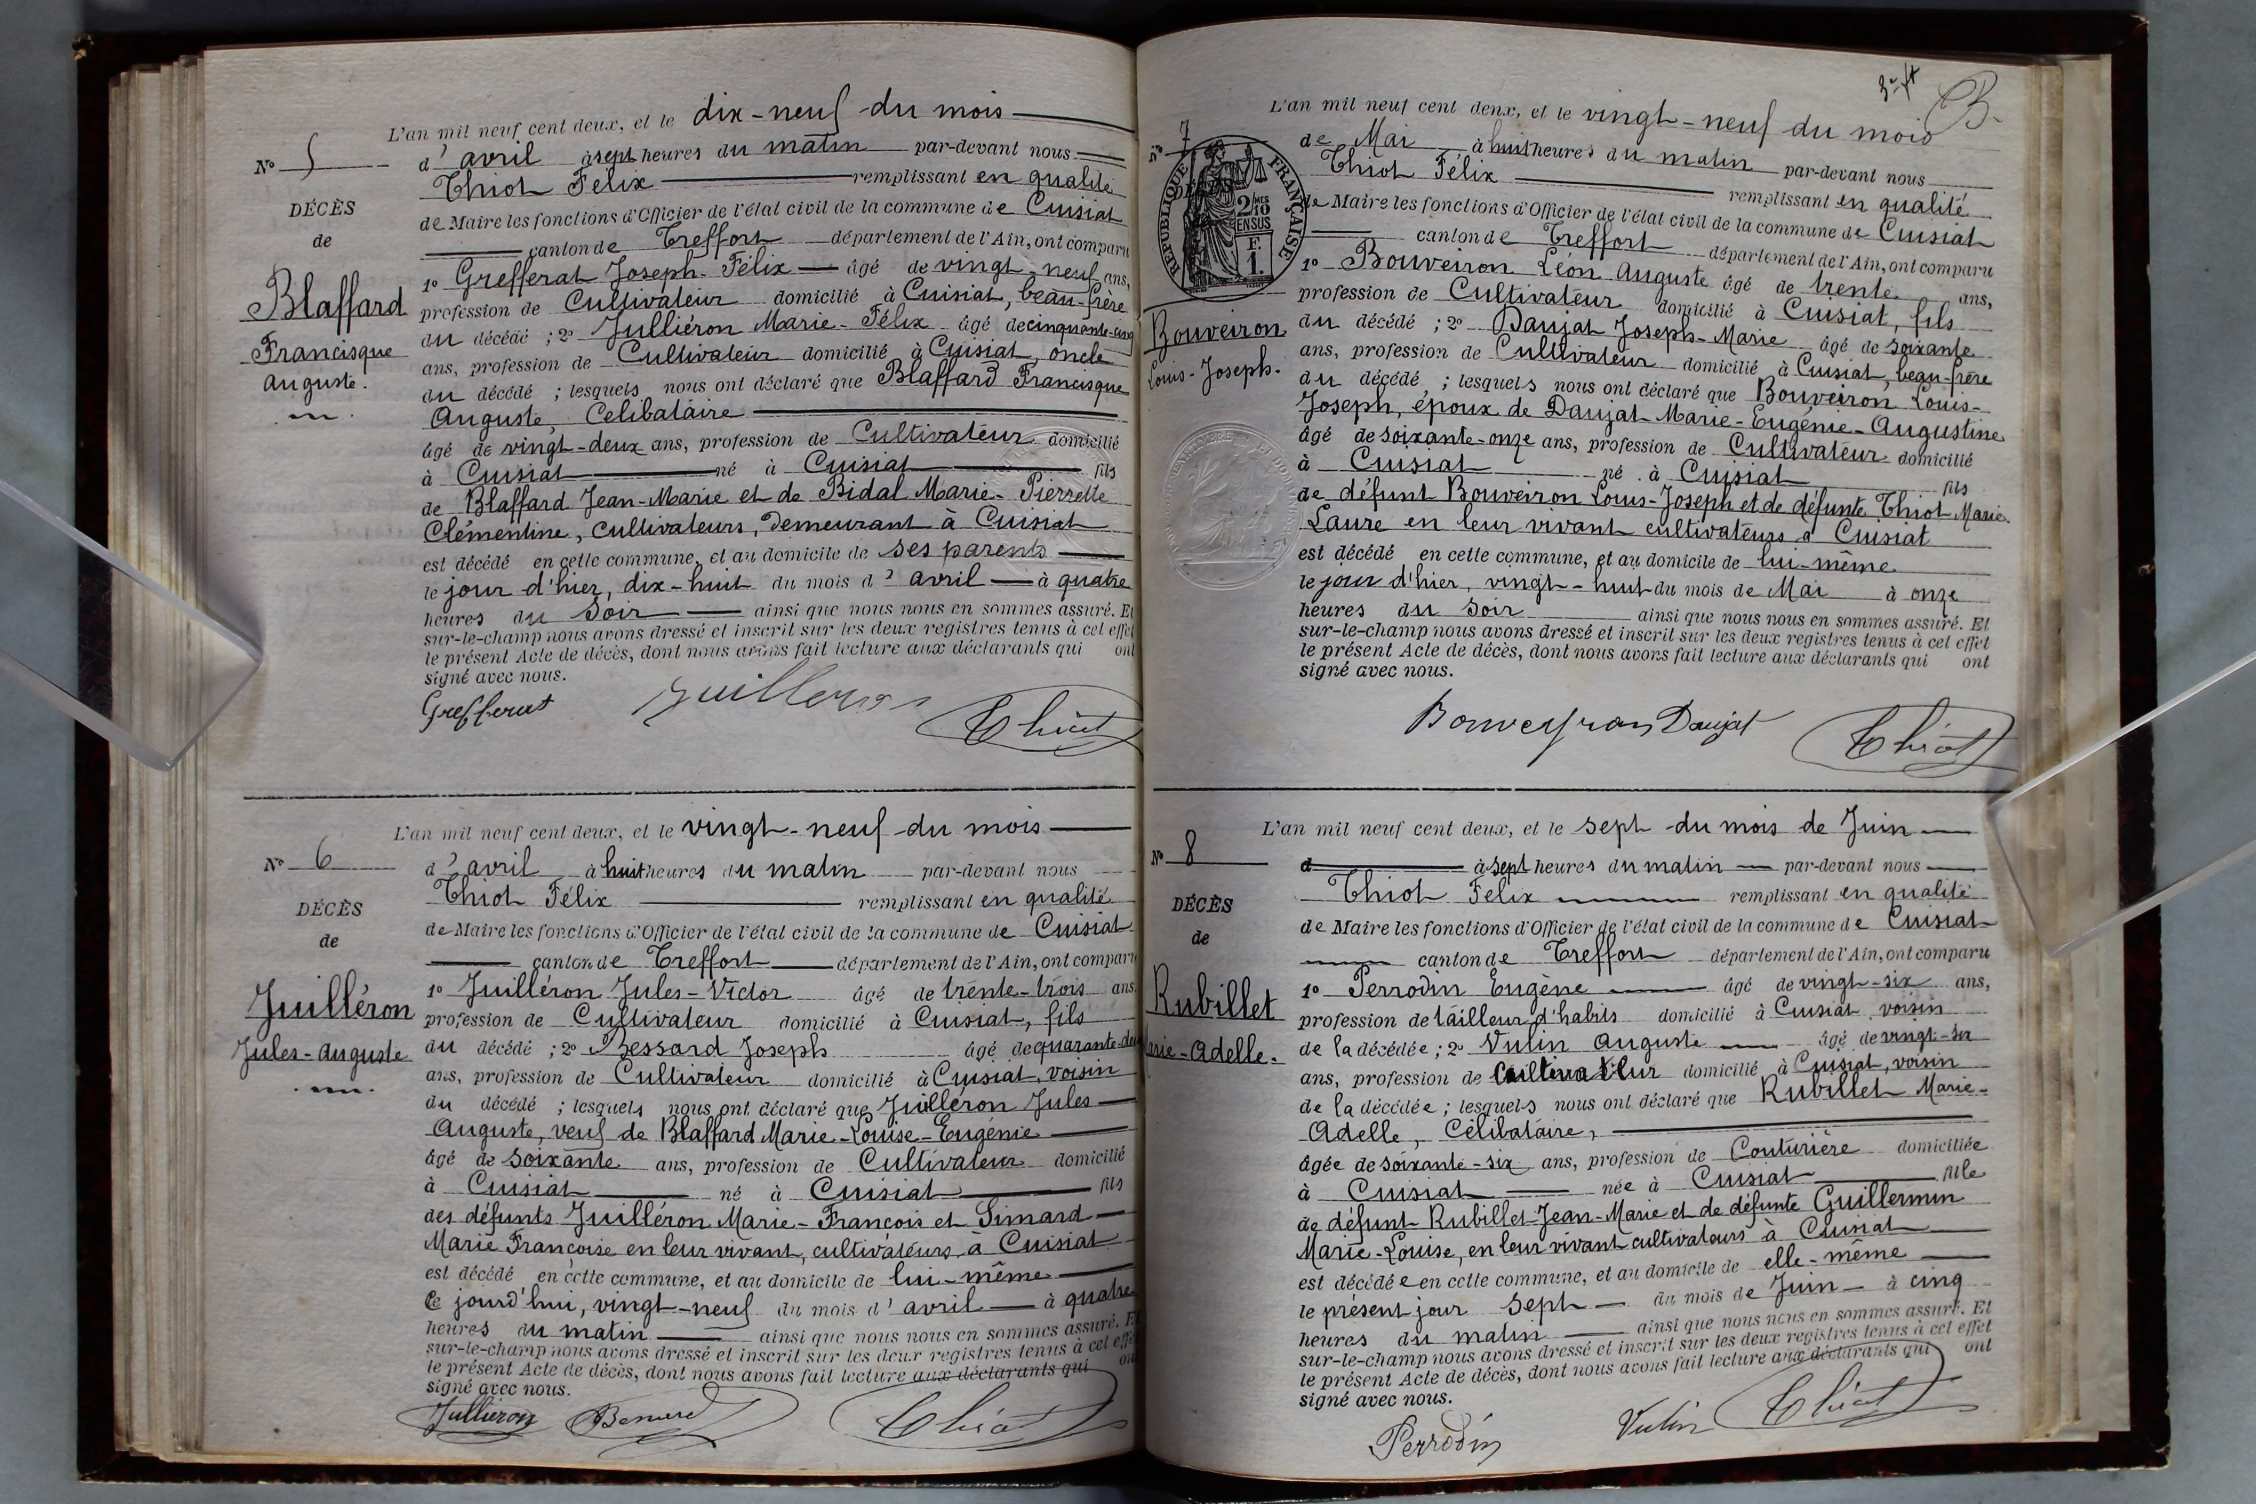 L'an mil neuf cent deux, et le dix-neuf du mois
N° 5
d'avril à sept heures du matin par-devant nous
Thiot Félix remplissant en qualité
DÉCÈS
de Maire les fonctions d'Officier de l'état civil de la commune de Cuisiat
de
canton de Treffort département de l'Ain, ont comparu
1° Grefferat Joseph-Félix âgé de vingt-neuf ans,
Blaffard
profession de Cultivateur domicilié à Cuisiat, beau-frère
du décédé ; 2° Julliéron Marie-Félix âgé de cinquante-cinq
Francisque
ans, profession de Cultivateur domicilié à Cuisiat, oncle
Auguste.
du décédé ; lesquels nous ont déclaré que Blaffard Francisque
Auguste, Célibataire
âgé de vingt-deux ans, profession de Cultivateur domicilié
à Cuisiat né à Cuisiat fils
de Blaffard Jean-Marie et de Bidal Marie-Pierrette
Clémentine, cultivateurs, demeurant à Cuisiat
est décédé en cette commune, et au domicile de ses parents
le jour d'hier, dix-huit du mois d'avril à quatre
heures du soir ainsi que nous nous en sommes assuré. Et
sur-le-champ nous avons dressé et inscrit sur les deux registres tenus à cet effet
le présent Acte de décès, dont nous avons fait lecture aux déclarants qui ont
signé avec nous.
Grefferat Juilleron Thiot
L'an mil neuf cent deux, et le vingt-neuf du mois
N° 6
d'avril à huit heures du matin par-devant nous
Thiot Félix remplissant en qualité
DÉCÈS
de Maire les fonctions d'Officier de l'état civil de la commune de Cuisiat
de
canton de Treffort département de l'Ain, ont comparu
1° Juilléron Jules-Victor âgé de trente-trois ans,
Juilléron
profession de Cultivateur domicilié à Cuisiat, fils
Jules-Auguste
du décédé ; 2° Bessard Joseph âgé de quarante-deux
ans, profession de Cultivateur domicilié à Cuisiat, voisin
du décédé ; lesquels nous ont déclaré que Juilléron Jules
Auguste, veuf de Blaffard Marie-Louise-Eugénie
âgé de soixante ans, profession de Cultivateur domicilié
à Cuisiat né à Cuisiat fils
des défunts Juilléron Marie-François et Simard
Marie Françoise en leur vivant, cultivateurs à Cuisiat
est décédé en cette commune, et au domicile de lui-même
le jourd'hui, vingt-neuf du mois d'avril à quatre
heures du matin ainsi que nous nous en sommes assuré. Et
sur-le-champ nous avons dressé et inscrit sur les deux registres tenus à cet effet
le présent Acte de décès, dont nous avons fait lecture aux déclarants qui ont
signé avec nous.
Jullieron Thiot
B.
L'an mil neuf cent deux, et le vingt-neuf du mois
N° 7
de Mai à huit heures du matin par-devant nous
Thiot Félix remplissant en qualité
RÉPUBLIQUE FRANÇAISE.
2/10 EN SUS
F. 1.
de Maire les fonctions d'Officier de l'état civil de la commune de Cuisiat
canton de Treffort département de l'Ain, ont comparu
1° Bouveiron Léon Auguste âgé de trente ans,
profession de Cultivateur domicilié à Cuisiat, fils
Bouveiron
du décédé ; 2° Daujat Joseph-Marie âgé de soixante
Louis-Joseph.
ans, profession de Cultivateur domicilié à Cuisiat, beau-frère
du décédé ; lesquels nous ont déclaré que Bouveiron Louis-
Joseph, époux de Daujat Marie-Eugénie-Augustine
âgé de soixante-onze ans, profession de Cultivateur domicilié
à Cuisiat né à Cuisiat fils
de défunt Bouveiron Louis-Joseph et de défunte Thiot Marie
Laure en leur vivant cultivateurs à Cuisiat
est décédé en cette commune, et au domicile de lui-même
le jour d'hier, vingt-huit du mois de Mai à onze
heures du soir ainsi que nous nous en sommes assuré. Et
sur-le-champ nous avons dressé et inscrit sur les deux registres tenus à cet effet
le présent Acte de décès, dont nous avons fait lecture aux déclarants qui ont
signé avec nous.
Bouveyron Daujat Thiot
L'an mil neuf cent deux, et le sept du mois de Juin
N° 8
d à sept heures du matin par-devant nous
Thiot Félix remplissant en qualité
DÉCÈS
de Maire les fonctions d'Officier de l'état civil de la commune de Cuisiat
de
canton de Treffort département de l'Ain, ont comparu
1° Perrodin Eugène âgé de vingt-six ans,
Rubillet
profession de tailleur d'habits domicilié à Cuisiat, voisin
Marie-Adelle.
de la décédée ; 2° Vulin Auguste âgé de vingt-six
ans, profession de Cultivateur domicilié à Cuisiat, voisin
de la décédée ; lesquels nous ont déclaré que Rubillet Marie-
Adelle, Célibataire,
âgée de soixante-six ans, profession de Couturière domiciliée
à Cuisiat née à Cuisiat fille
de défunt Rubillet Jean-Marie et de défunte Guillermin
Marie-Louise, en leur vivant cultivateurs à Cuisiat
est décédée en cette commune, et au domicile de elle-même
le présent jour sept du mois de Juin à cinq
heures du matin ainsi que nous nous en sommes assuré. Et
sur-le-champ nous avons dressé et inscrit sur les deux registres tenus à cet effet
le présent Acte de décès, dont nous avons fait lecture aux déclarants qui ont
signé avec nous.
Perrodin Vulin Thiot